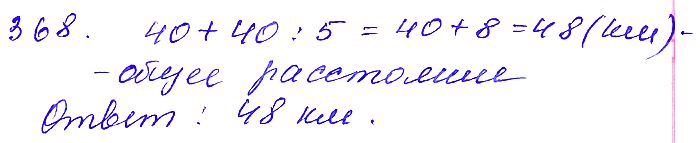 368. 40 + 40 : 5 = 40 + 8 = 48 (км) -
- общее расстояние
Ответ : 48 км .